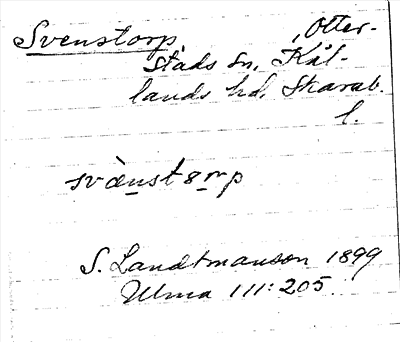 Svenstorp, Otter-
stads sn, Kål-
lands hd, Skarab.
l.
svænstorp
S. Landtmanson 1899
Ulma 111:205